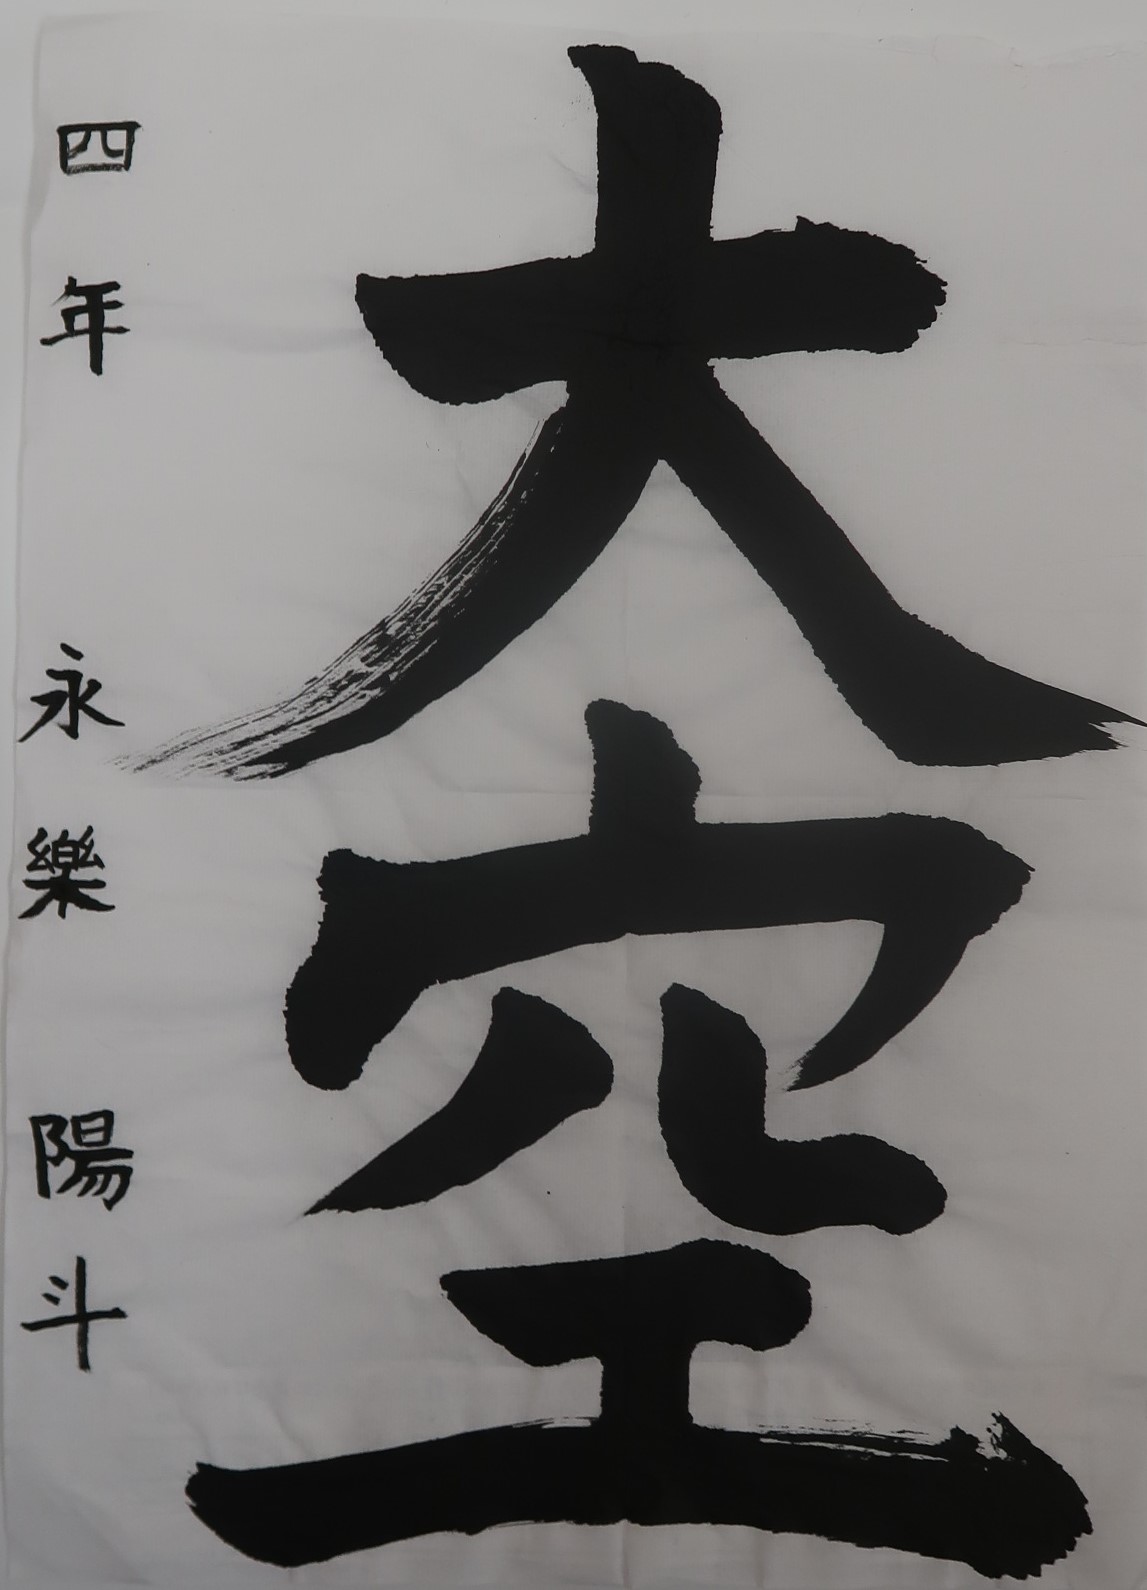 大空
四年 永樂 陽斗